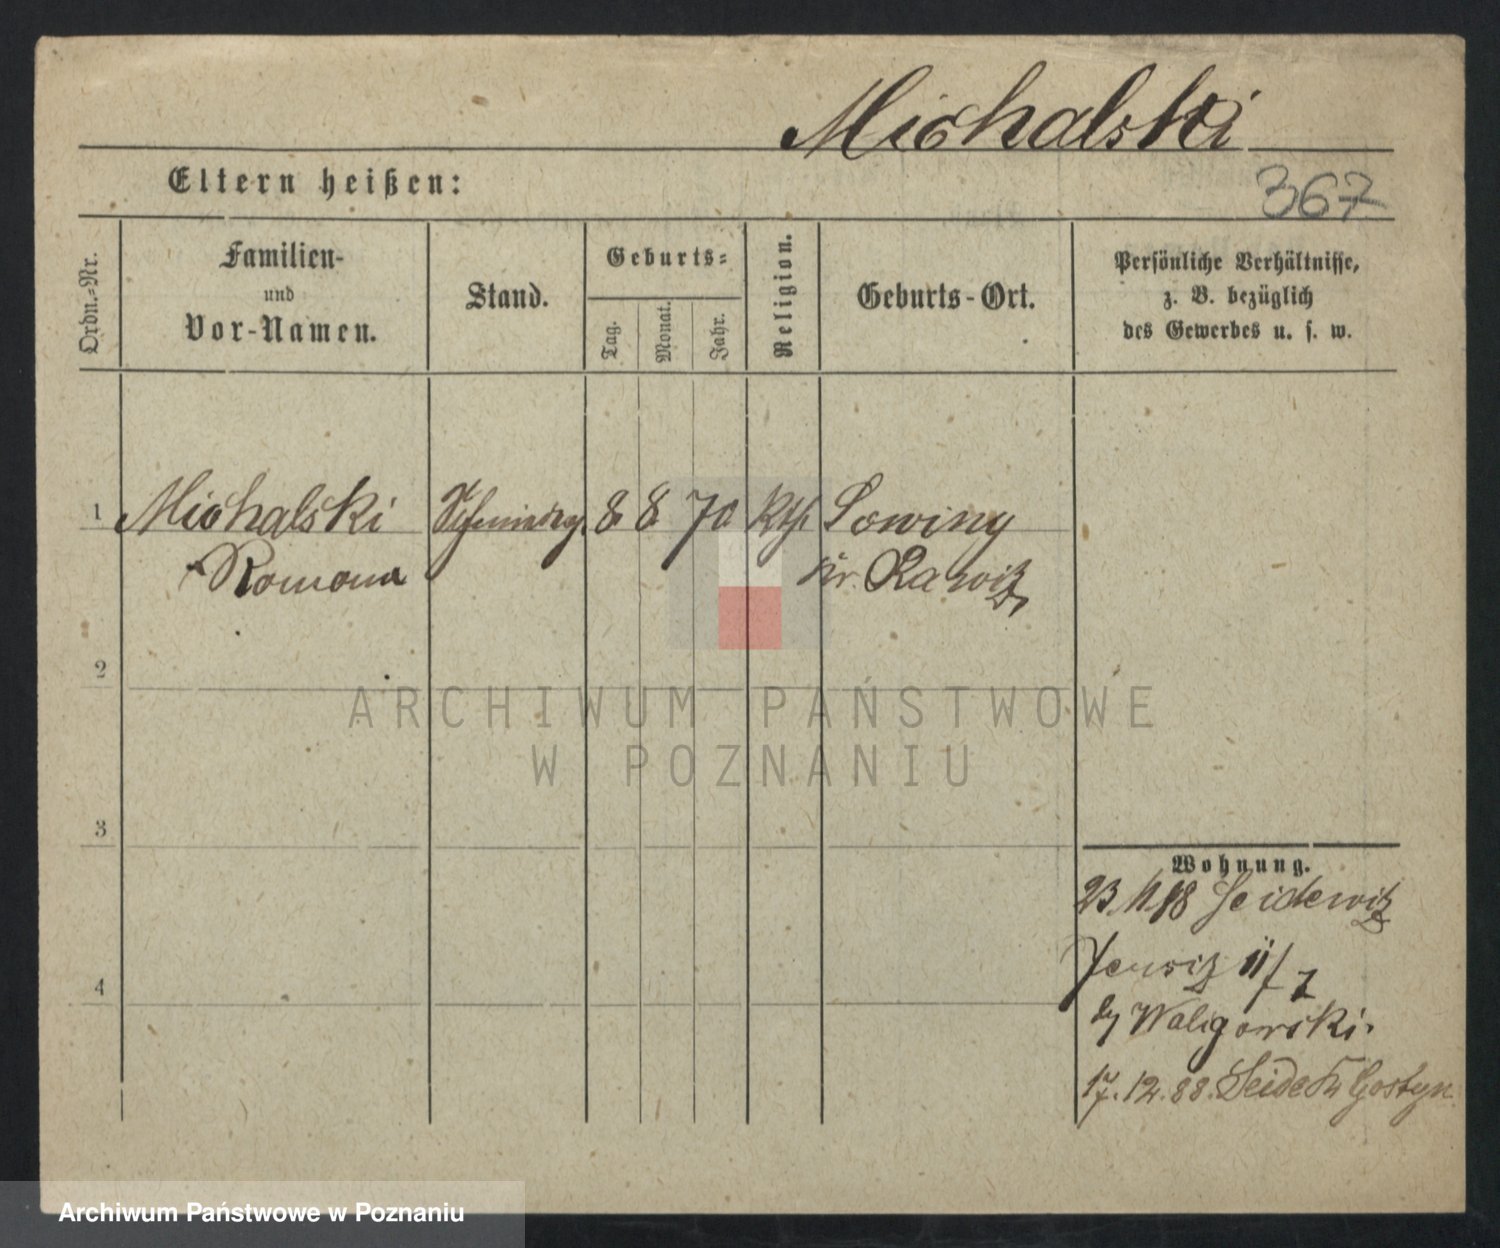 Michalski
Eltern heißen:
367
Ordn.-Nr.
Familien-
und
Vor-Namen.
Stand.
Geburts-
Tag.
Monat.
Jahr.
Religion.
Geburts-Ort.
Persönliche Verhältnisse,
z. B. bezüglich
des Gewerbes u. s. w.
1 Michalski 8 8 70 Kth. Lowiny
Romana Kr. Rawitz
2
ARCHIWUM PAŃSTWOWE
W POZNANIU
3
Wohnung.
23.11.88 Seidewitz
4
Jersitz 11/7
by Waligorski.
17.12.88. Gostyn
Archiwum Państwowe w Poznaniu